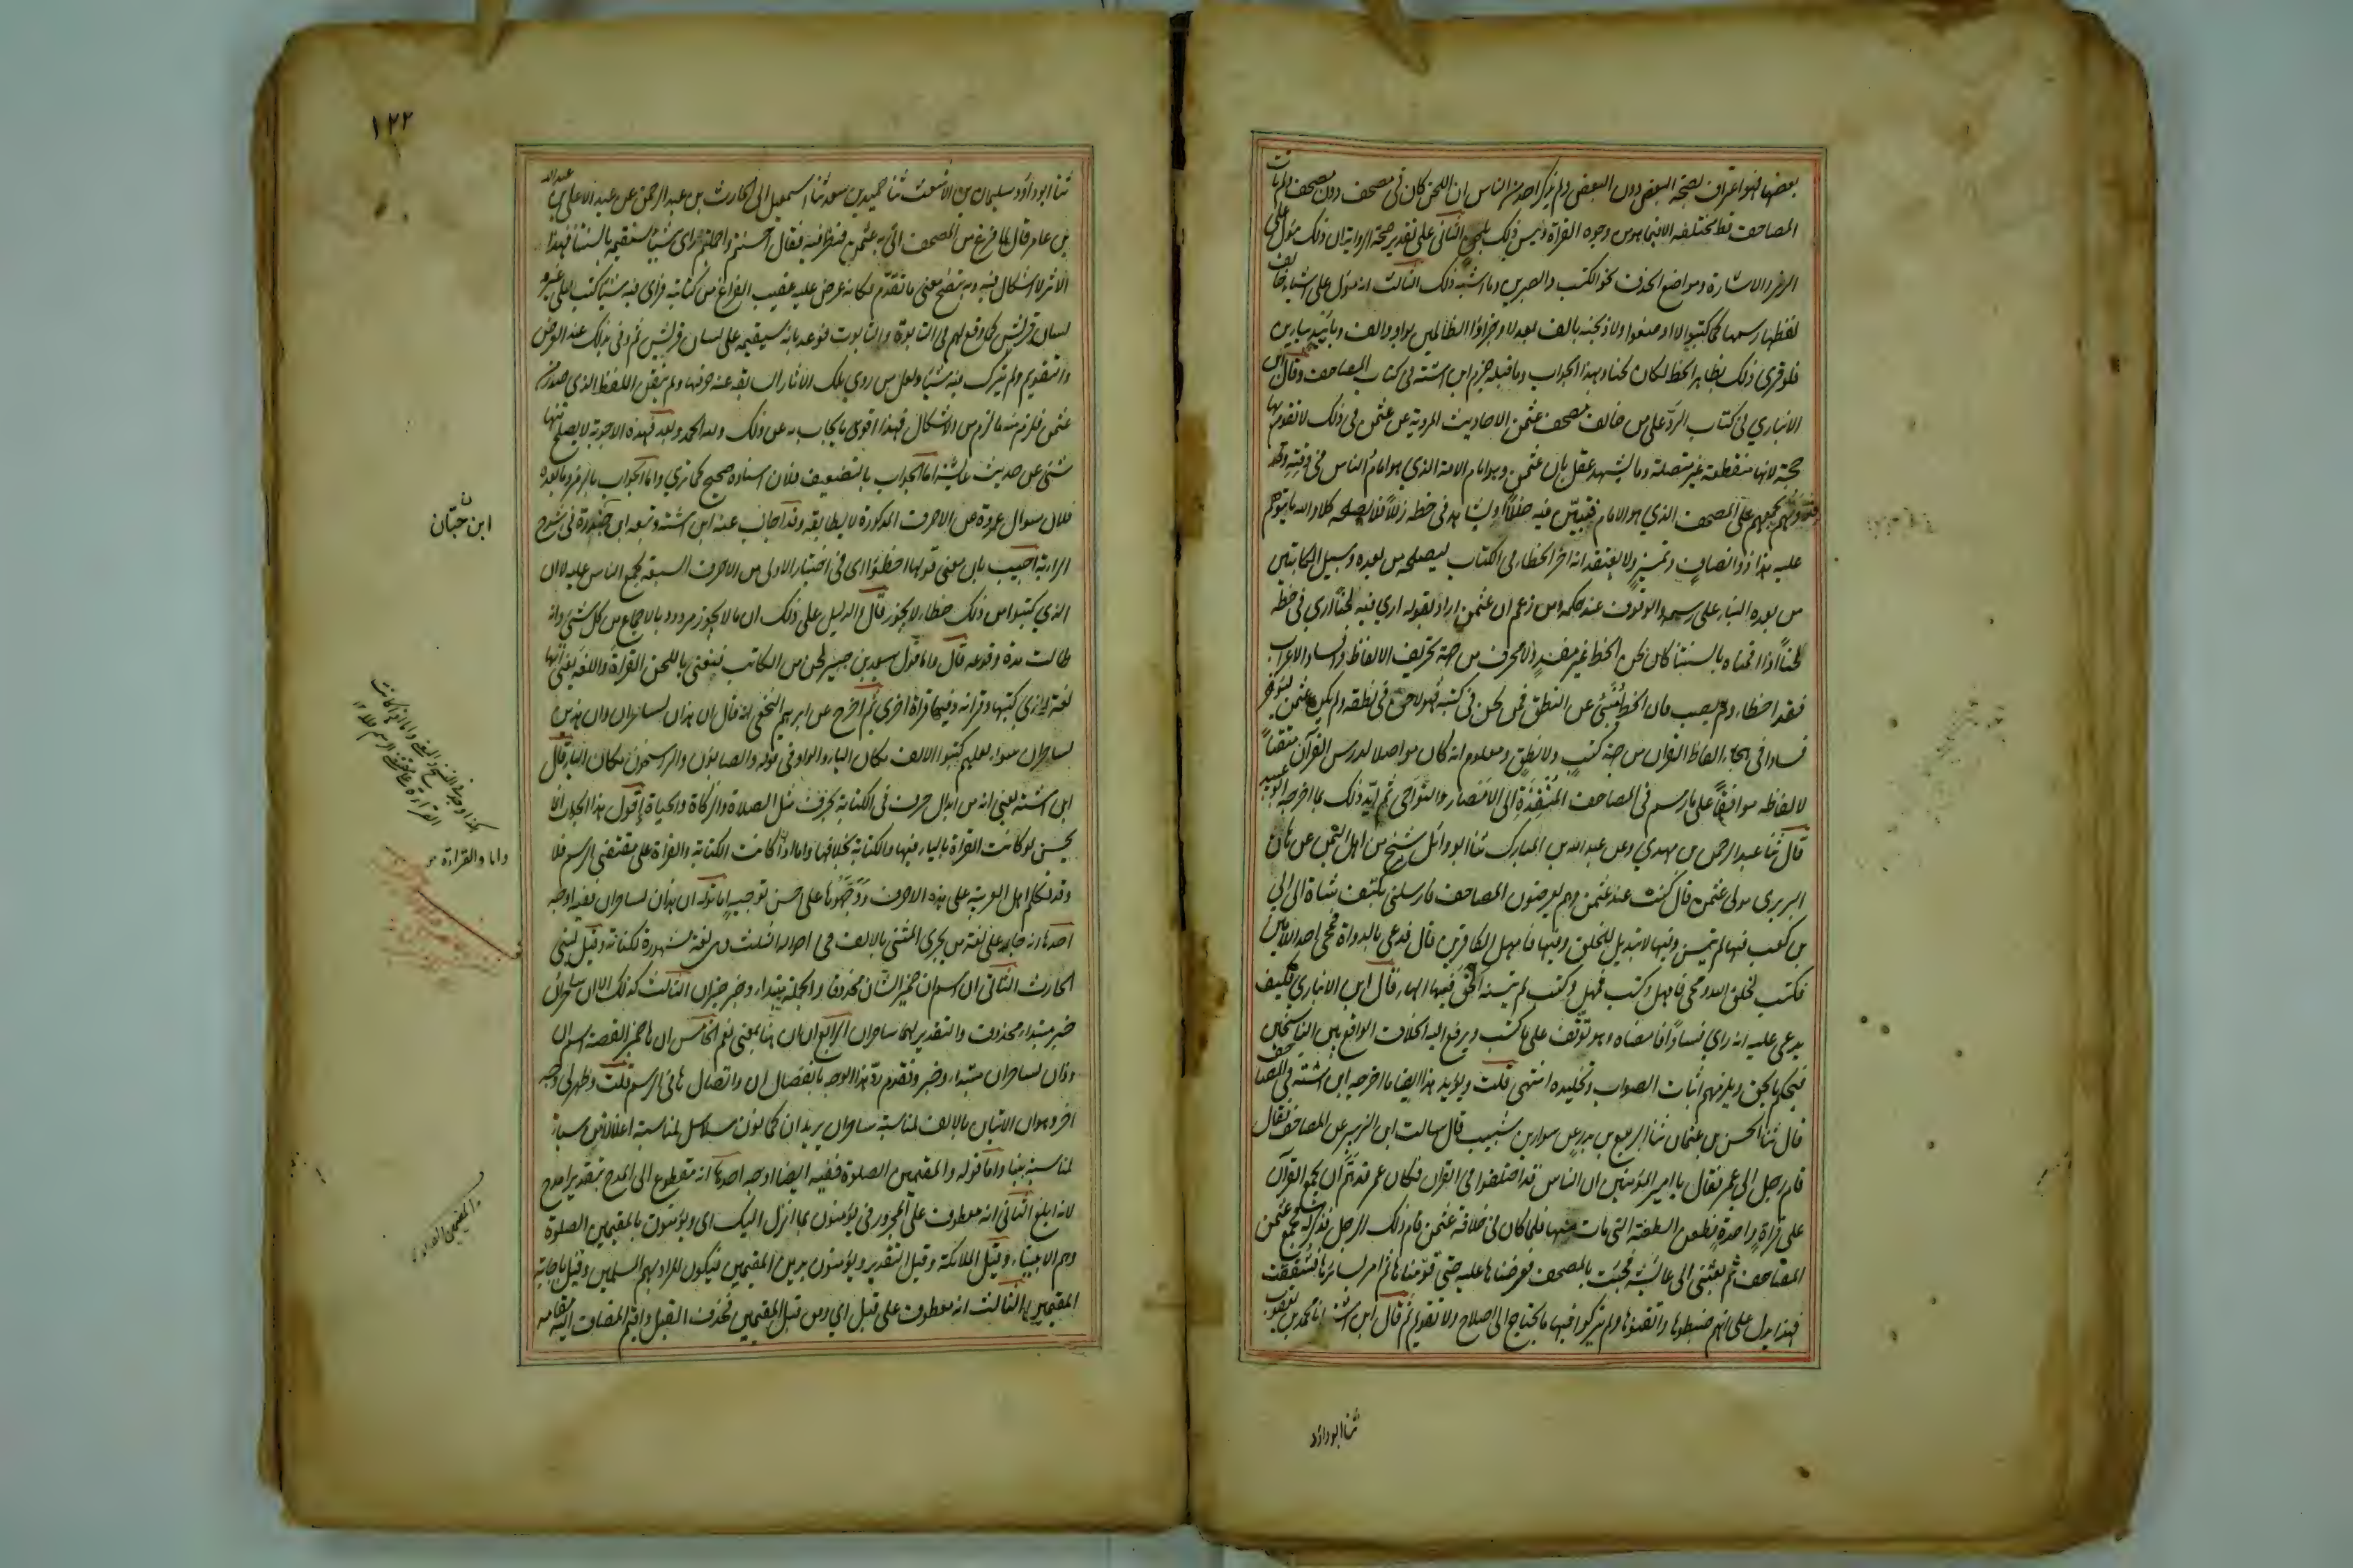 بعضها فهو اعتراف بصحة البعض دون البعض ولم يذكر احد من الناس ان اللحن كان في مصحف دون مصحف ولم تات
المصاحف قط مختلفة الا فيما هو من وجوه القرآة وليس ذلك بلحن الثاني على تقدير صحة الرواية ان ذلك مؤل على
الرمز والاشارة ومواضع الحذف نحو الكتب والصبرين وما اشبه ذلك الثالث انه مؤل على اشياء خالف
لفظها رسمها كما كتبوا لا اوضعوا ولا اذبحنه بالف بعد لا وجزاؤا الظالمين بواو والف وباييد بيائين
فلو قرئ ذلك بظاهر الخط لكان لحنا وبهذا الجواب وما قبله جزم ابن اشته في كتاب المصاحف وقال ابن
الانباري في كتاب الرد على من خالف مصحف عثمن الاحاديث المروية عن عثمن في ذلك لا تقوم بها
حجة لانها منقطعة غير متصلة وما يشهد عقل بان عثمن وهو امام الامة الذي هو امام الناس في وقته وقد
وتهم يجمعهم على المصحف الذي هو الامام فيتبيّن فيه خللا ويشاهد في خطه زللا فلا يصلحه كلا والله ما يتوهم
عليه هذا ذو انصاف وتميز ولا يعتقد انه اخر الخطاء في الكتاب ليصلحه من بعده وسبيل الكاتبين
من بعده البناء على رسمه والوقوف عند حكمه ومن زعم ان عثمن اراد بقوله ارى فيه لحنا ارى في خطه
لحنا اذا اقمناه بالسنتنا كان لحن الخط غير مفسد ولا محرف من جهة تحريف الالفاظ وافساد الاعراب
فقد اخطاء ولم يصب فان الخط منبئ عن النطق فمن لحن في كتبه فهو لاحن في نطقه ولم يكن عثمن ليؤخر
فسادا في هجاء الفاظ القران من جهة كتب ولا نطق ومعلوم انه كان مواصلا لدرس القرآن متقنا
لالفاظه موافقا على ما رسم في المصاحف المنفذة الى الامصار والنواحي ثم ايّد ذلك بما اخرجه ابو عبيد
قال ثنا عبد الرحمن بن مهدي وعن عبد الله بن المبارك ثنا ابو وائل شيخ من اهل اليمن عن هانئ
البربري مولى عثمن قال كنت عند عثمن وهم يعرضون المصاحف فارسلني بكتف شاة الى ابي
بن كعب فيها لم يتسن وفيها لا تبديل للخلق وفيها فامهل الكافرين قال فدعى بالدواة فمحى احد اللامين
فكتب لخلق الله ومحى فامهل وكتب فمهل وكتب لم يتسنه الحق فيها الهاء قال ابن الانباري فكيف
يدعى عليه انه راى فسادا فامضاه وهو توقف على ما كتب ويرفع اليه الخلاف الواقع بين الناسخين
فيحكم بالحق ويلزمهم اثبات الصواب وتخليده انتهى قلت ويؤيد هذا ايضا ما اخرجه ابن اشته في المصاحف
قال ثنا الحسن بن عثمان ثنا الربيع بن بدر عن سوار بن شبيب قال سالت ابن الزبير عن المصاحف فقال
قام رجل الى عمر فقال يا امير المؤمنين ان الناس قد اختلفوا في القران فكان عمر قد همّ ان يجمع القرآن
على قراة واحدة فطعن الطعنة التي مات منها فلما كان في خلافة عثمن قام ذلك الرجل فذكر له فجمع عثمن
المصاحف ثم بعثني الى عائشة فجئت بالمصحف فعرضناها عليه حتى قومناها ثم امر بسائرها فشققت
فهذا يدل على انهم ضبطوها واتقنوها ولم يتركوا فيها ما يحتاج الى اصلاح ولا تقويم ثم قال ابن اشته انا محمد بن يعقوب
ثنا ابو داود
١٢٢
ثنا ابو داود سليمان بن الاشعث ثنا حميد بن مسعد ثنا اسمعيل الى الحارث بن عبد الرحمن عن عبد الاعلى بن عبد الله
بن عامر قال لما فرغ من المصحف اتى به عثمن فنظر فيه فقال احسنتم واجملتم ارى شيئا ستقيمه بالسنتنا فهذا
الاثر لا اشكال فيه وبه يتضح معنى ما تقدم فكانه عرض عليه عقيب الفراغ من كتابته فراى فيه شيئا كتب على غير
لسان قريش كما وقع لهم في التابوة والتابوت فوعد بانه سيقيمه على لسان قريش ثم وفى بذلك عند العرض
والتقويم ولم يترك فيه شيئا ولعل من روى تلك الاثار السابقة عنه حرفها ولم يتقن اللفظ الذي صدر من
عثمن فلزم منه ما لزم من الاشكال فهذا اقوى ما يجاب به عن ذلك ولله الحمد وبعد فهذه الاجوبة لا يصلح منها
شئ عن حديث عائشة اما الجواب بالتضعيف فلان اسناده صحيح كما ترى واما الجواب بالرمز وما بعده
فلان سوال عروة عن الاحرف المذكورة لا يطابقه وقد اجاب عنه ابن اشته وتبعه ابن جبارة في شرح
الرائية اجيب بان معنى قولها اخطؤا اى في اختيار الاولى من الاحرف السبعة لجمع الناس عليه لا ان
الذي كتبوا من ذلك خطاء لا يجوز قال والدليل على ذلك ان ما لا يجوز مردود بالاجماع من كل شئ وان
طالت مدة وقوعه قال واما قول سعيد بن جبير لحن من الكاتب فيعنى باللحن القراءة واللغة يعني انها
لغة الذي كتبها وقرائته وفيها قراة اخرى ثم اخرج عن ابراهيم النخعي انه قال ان هذان لساحران وان هذين
لساحران سواء لعلهم كتبوا الالف مكان الياء والواو في قوله والصابئون والراسخون مكان الياء قال
ابن اشته يعني انه من ابدال حرف في الكتابة بحرف مثل الصلاة والزكاة والحياة اقول هذا الجواب انما
يحسن لو كانت القراة بالياء فيها والكتابة بخلافها واما اذا كانت الكتابة والقراة على مقتضى الرسم فلا
وقد تكلم اهل العربية على هذه الاحرف ووجّهوها على احسن توجيه اما قوله ان هذان لساحران ففيه اوجه
احدها انه جار على لغة من يجري المثنى بالالف في احواله الثلث وهي لغة مشهورة لكنانة وقيل لبني
الحارث الثاني ان اسم ان ضمير الشان محذوفا والجملة مبتداء وخبر خبران الثالث كذلك الا ان ساحران
خبر مبتداء محذوف والتقدير لهما ساحران الرابع ان ان هنا بمعنى نعم الخامس ان ها ضمير القصة اسم ان
وذان لساحران مبتداء وخبر وتقدم ردّ هذا الوجه بانفصال ان واتصال ها في الرسم قلت وظهر لي وجه
اخر وهو ان الاتيان بالالف لمناسبة ساحران يريدان كما نون سلاسل لمناسبة اغلالا ومن سبا
لمناسبة بنبا واما قوله والمقيمين الصلوة ففيه ايضا اوجه احدها انه مقطوع الى المدح بتقدير امدح
لانه ابلغ الثاني انه معطوف على المجرور في يؤمنون بما انزل اليك اى ويؤمنون بالمقيمين الصلوة
وهم الانبياء وقيل الملائكة وقيل التقدير ويؤمنون بدين المقيمين فيكون المراد بهم المسلمين وقيل باجابة
المقيمين الثالث انه معطوف على قبل اي ومن قبل المقيمين فحذفت القبل واقيم المضاف اليه مقامه
ابن حبان
واما والقراءة
والمقيمين الصلوة